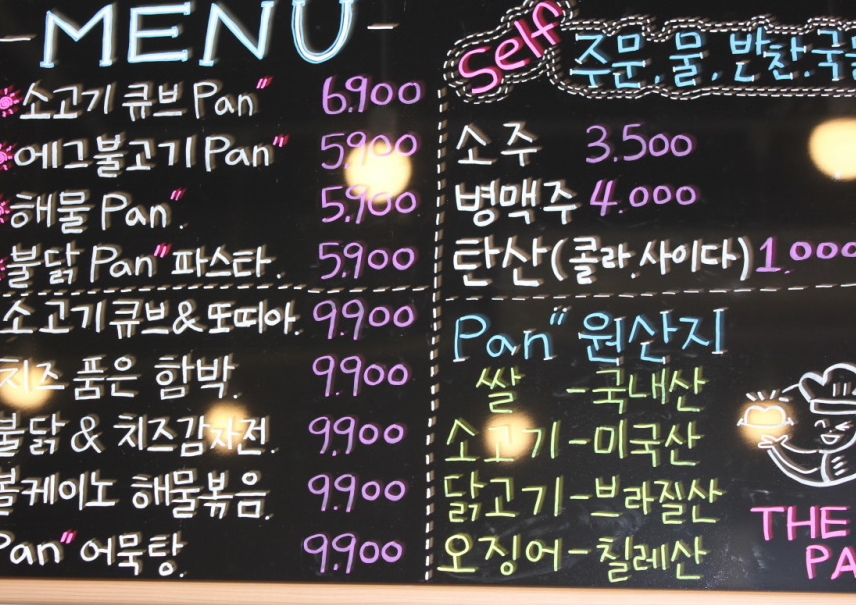 MENU
소고기 큐브 Pan" 6.900
에그불고기 Pan" 5.900
해물 Pan". 5.900
불닭 Pan" 파스타. 5.900
소고기 큐브&또띠아. 9.900
치즈 품은 함박. 9.900
불닭 & 치즈감자전. 9.900
볼케이노 해물볶음. 9.900
Pan" 어묵탕. 9.900
Self 주문.물.반찬.국물
소주 3.500
병맥주 4.000
탄산(콜라.사이다) 1.000
Pan" 원산지
쌀 - 국내산
소고기 - 미국산
닭고기 - 브라질산
오징어 - 칠레산
THE
PA